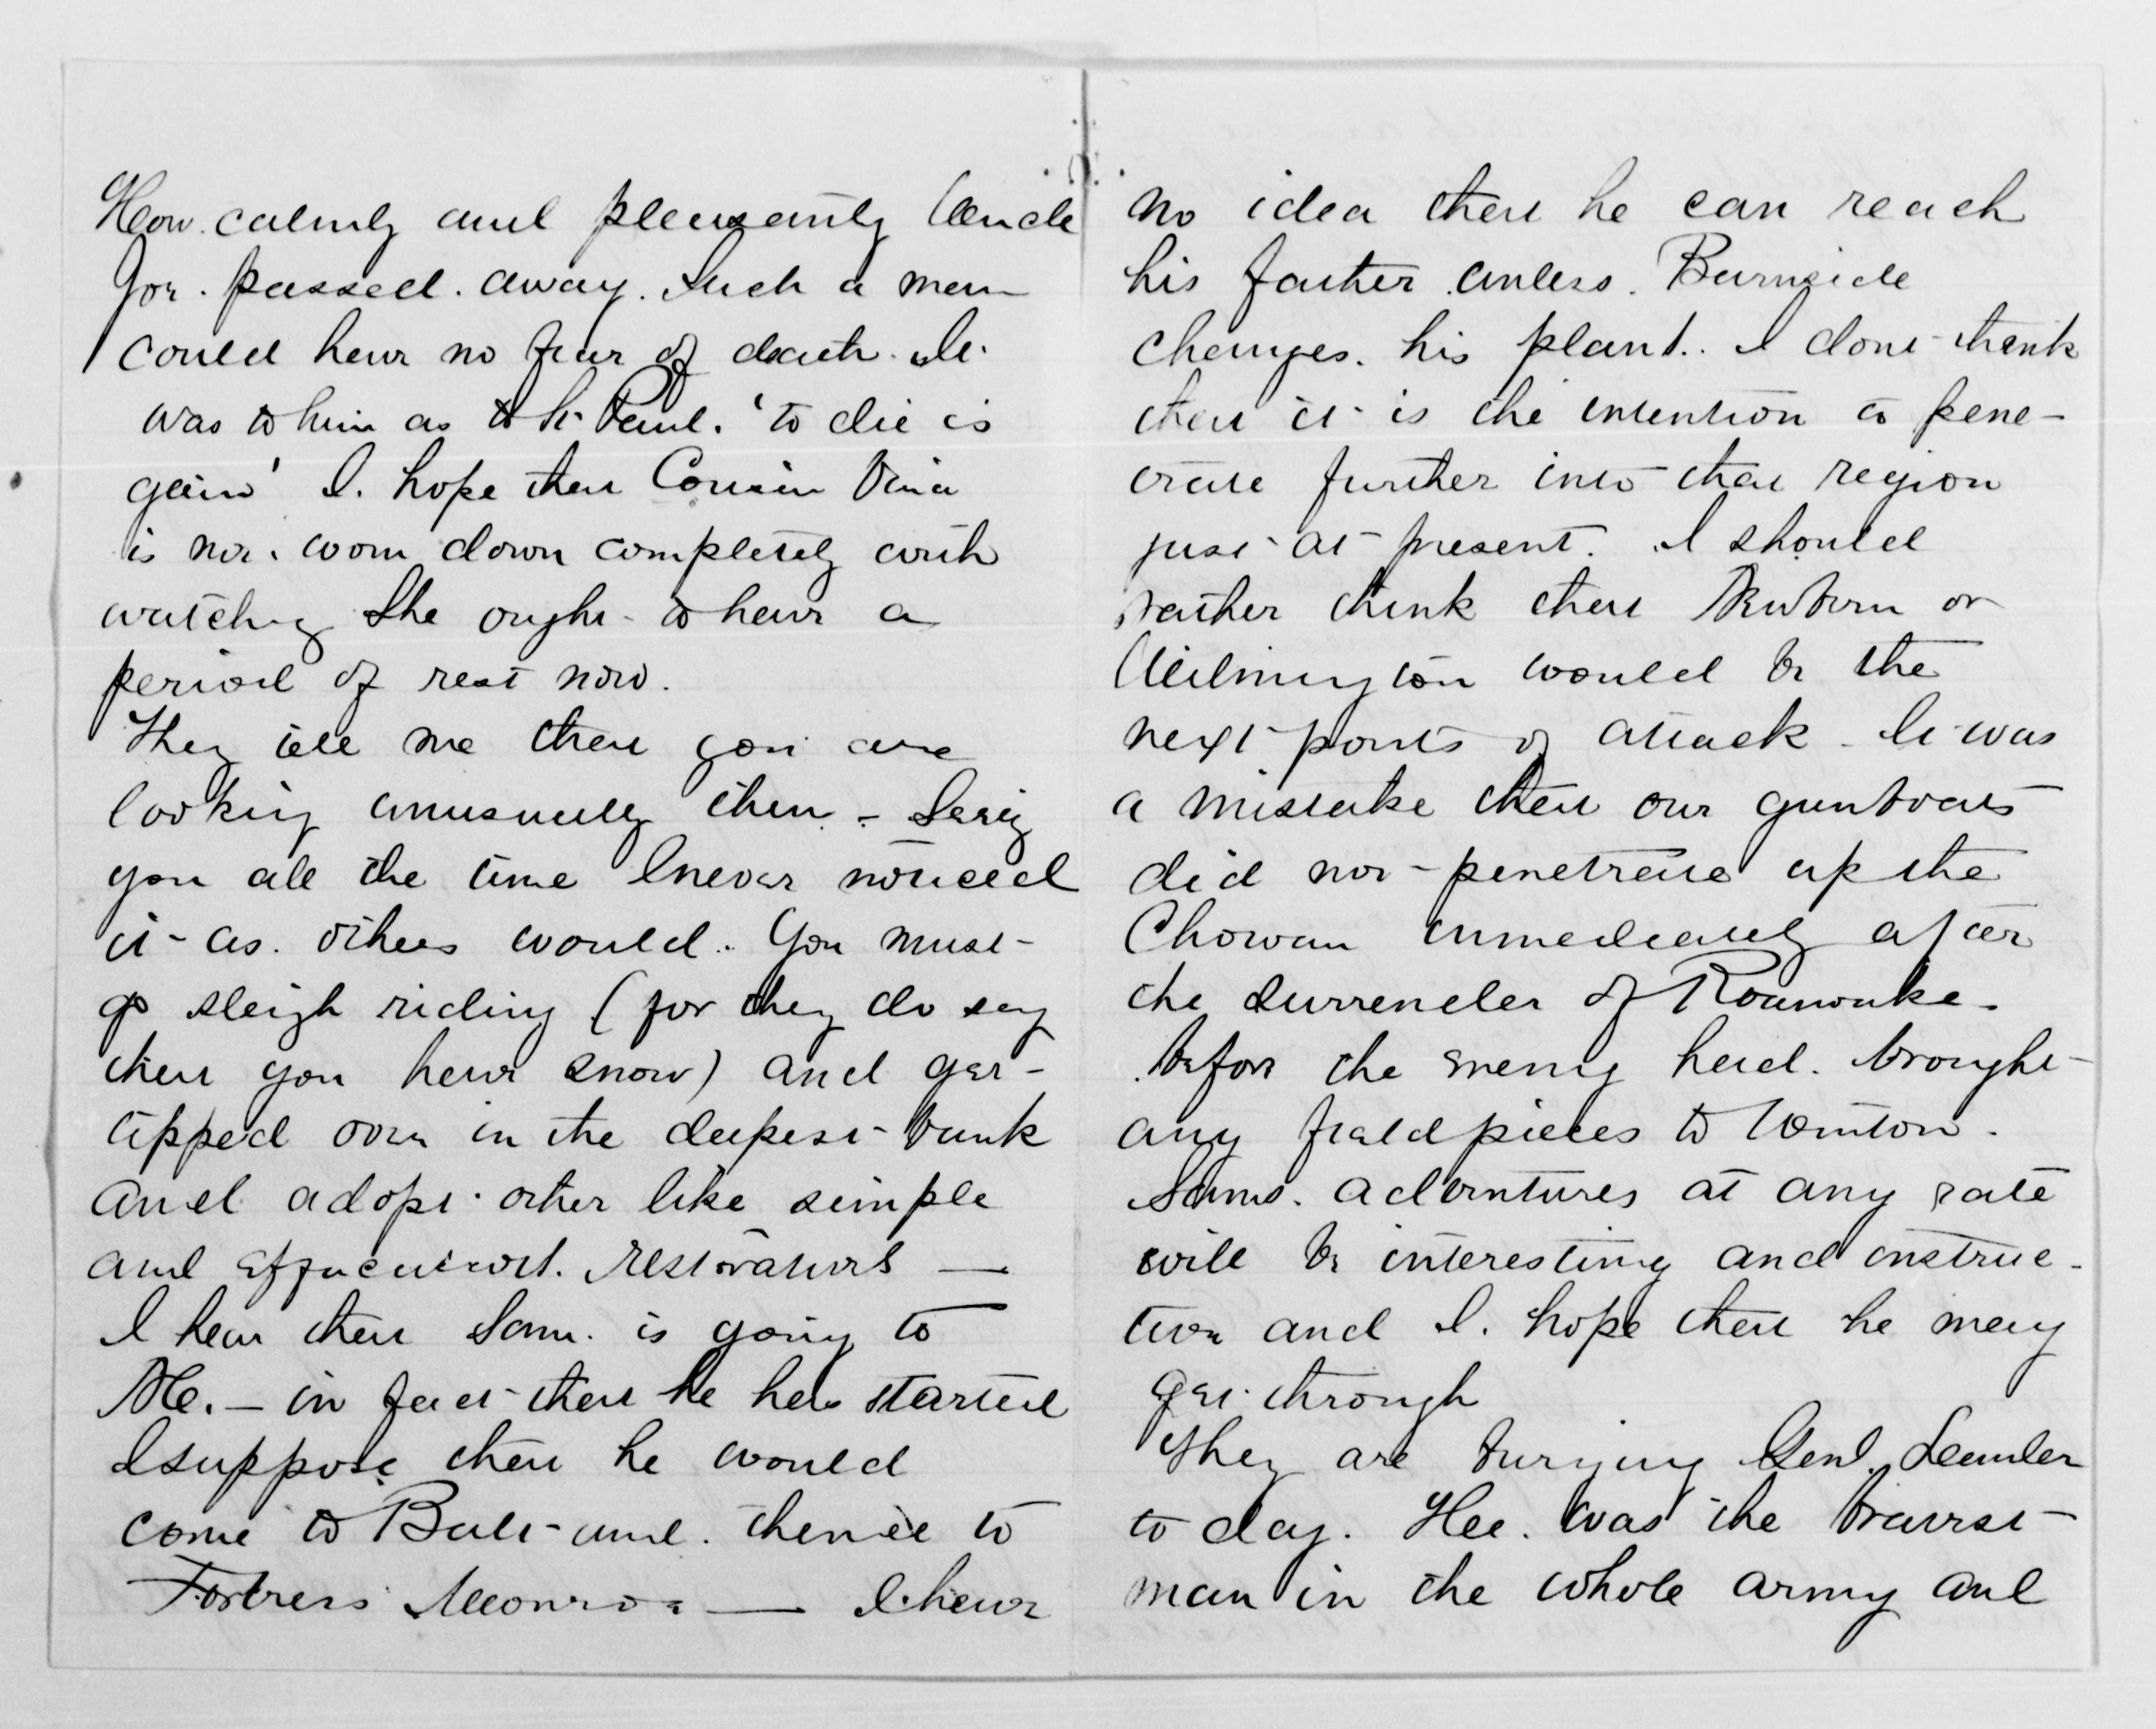 How calmly and pleasantly Uncle
Joe passed away. Such a man
could have no fear of death. It
was to him as to St Paul. 'to die is
gain' I hope that Cousin Vina
is not worn down completely with
watching She ought to have a
period of rest now.
They tell me that you are
looking unusually thin - Seeing
you all the time I never noticed
it as others would. You must
go sleigh riding (for they do say
that you have snow) and get
tipped over in the deepest bank
and adopt other like simple
and efficacious restoratives —
I hear that Sam. is going to
N.C. - in fact that he has started
I suppose that he would
come to Balt and thence to
Fortress Monroe — I have
no idea that he can reach
his father unless Burnside
changes his plans. I dont think
that it is the intention to pene-
trate further into that region
just at present. I should
rather think that Newbern or
Wilmington would be the
next points of attack - It was
a mistake that our gunboats
did not penetrate up the
Chowan immediately after
the surrender of Roanoake
before the enemy had brought
any field pieces to Winton.
Sams. adventures at any rate
will be interesting and instruc-
tive and I hope that he may
get through
They are burying Genl. Lander
to day. He was the bravest
man in the whole army and